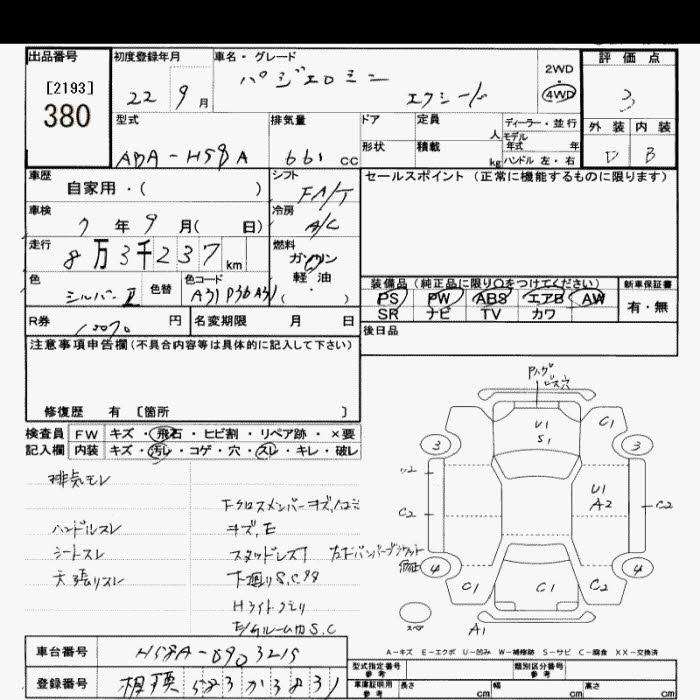 出品番号
[2193]
380
初度登録年月
22 9月
車名・グレード
パジェロミニ
エクシード
2WD
4WD
評価点
3
外装 内装
D B
型式
ABA-H58A
排気量
661 cc
ドア
形状
定員 人
積載 kg
ディーラー・並行
モデル
年式 年
ハンドル 左・右
車歴
自家用・( )
シフト
FA/T
車検
7年9月( 日)
冷房
A/C
走行
8万3千237km
燃料
ガソリン
軽・油
( )
色
シルバーⅡ
色替
色コード
A31
R券
円
名変期限 月 日
セールスポイント(正常に機能するものに限ります)
装備品(純正品に限り○をつけてください)
PS PW ABS エアB AW
SR ナビ TV カワ
新車保証書
有・無
後日品
注意事項申告欄(不具合内容等は具体的に記入して下さい)
修復歴 有 〔箇所 〕
検査員 FW キズ・飛石・ヒビ割・リペア跡・×要
記入欄 内装 キズ・汚レ・コゲ・穴・スレ・キレ・破レ
排気モレ
ハンドルスレ
シートスレ
天張りスレ
キズ、E
下廻りS.C
Hライトクモリ
E/gルーム内S.C
ビス穴
U1
S1
C1
3
3
U1
A2
C2
C2
4
4
C1
C1
C2
スペア
A1
A-キズ E-エクボ U-凹み W-補修跡 S-サビ C-腐食 XX-交換済
車台番号
H58A-0903215
登録番号
相模 583 か 3831
型式指定番号
参考
類別区分番号
参考
車庫証明用
参考
長さ cm
幅 cm
高さ cm